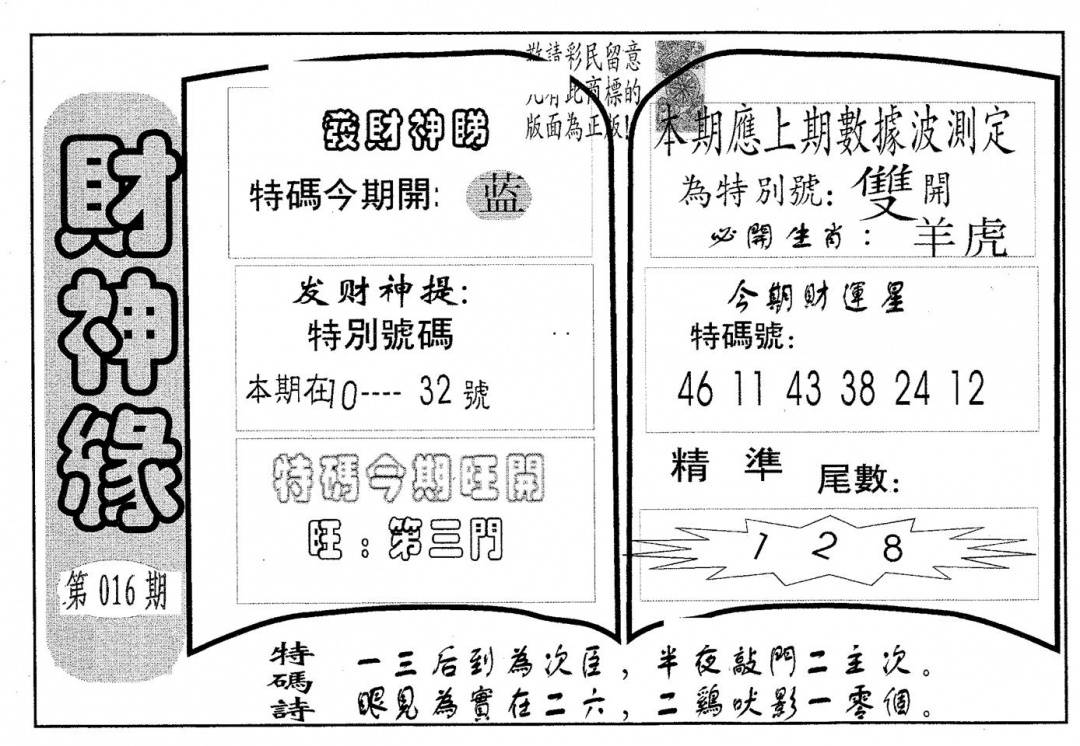 財神緣
第 016 期
敬請彩民留意
凡有此商標的
版面為正版!
發財神睇
特碼今期開: 蓝
发财神提:
特別號碼
本期在10---- 32 號
特碼今期旺開
旺:第三門
本期應上期數據波測定
為特別號: 雙開
必開生肖: 羊虎
今期財運星
特碼號:
46 11 43 38 24 12
精準 尾數:
1 2 8
特碼詩
一三后到為次臣,半夜敲門二主次。
眼見為實在二六,二鷄吠影一零個。